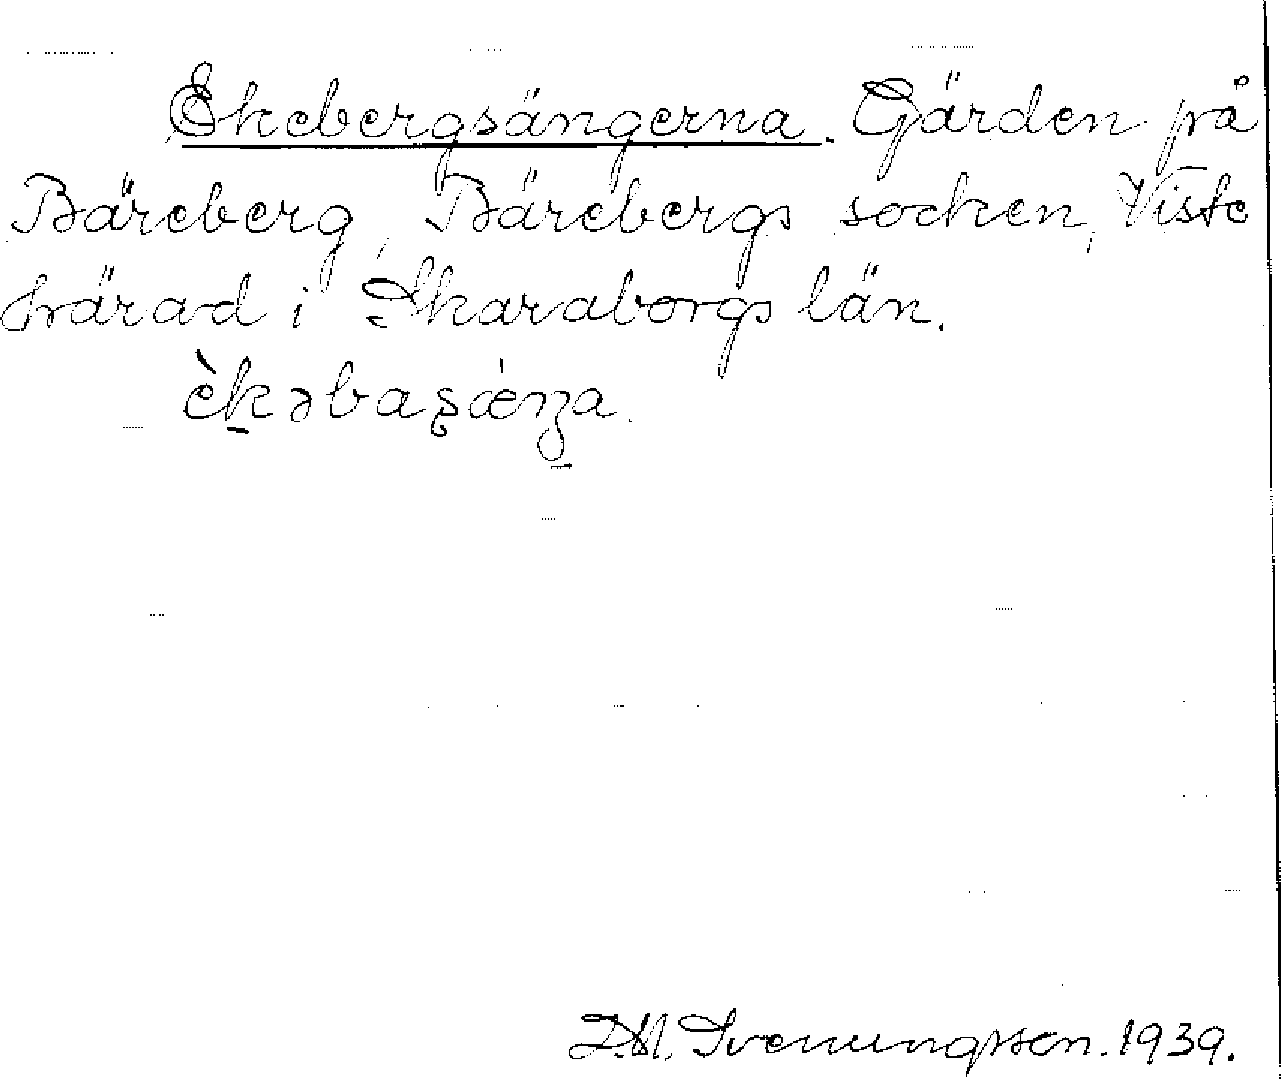 Ekebergsängerna. Gärden på
Bäreberg, Bärebergs socken, Viste
härad i Skaraborgs län.
èkəbaʂǽŋa.
D.M. Svenungsson. 1939.